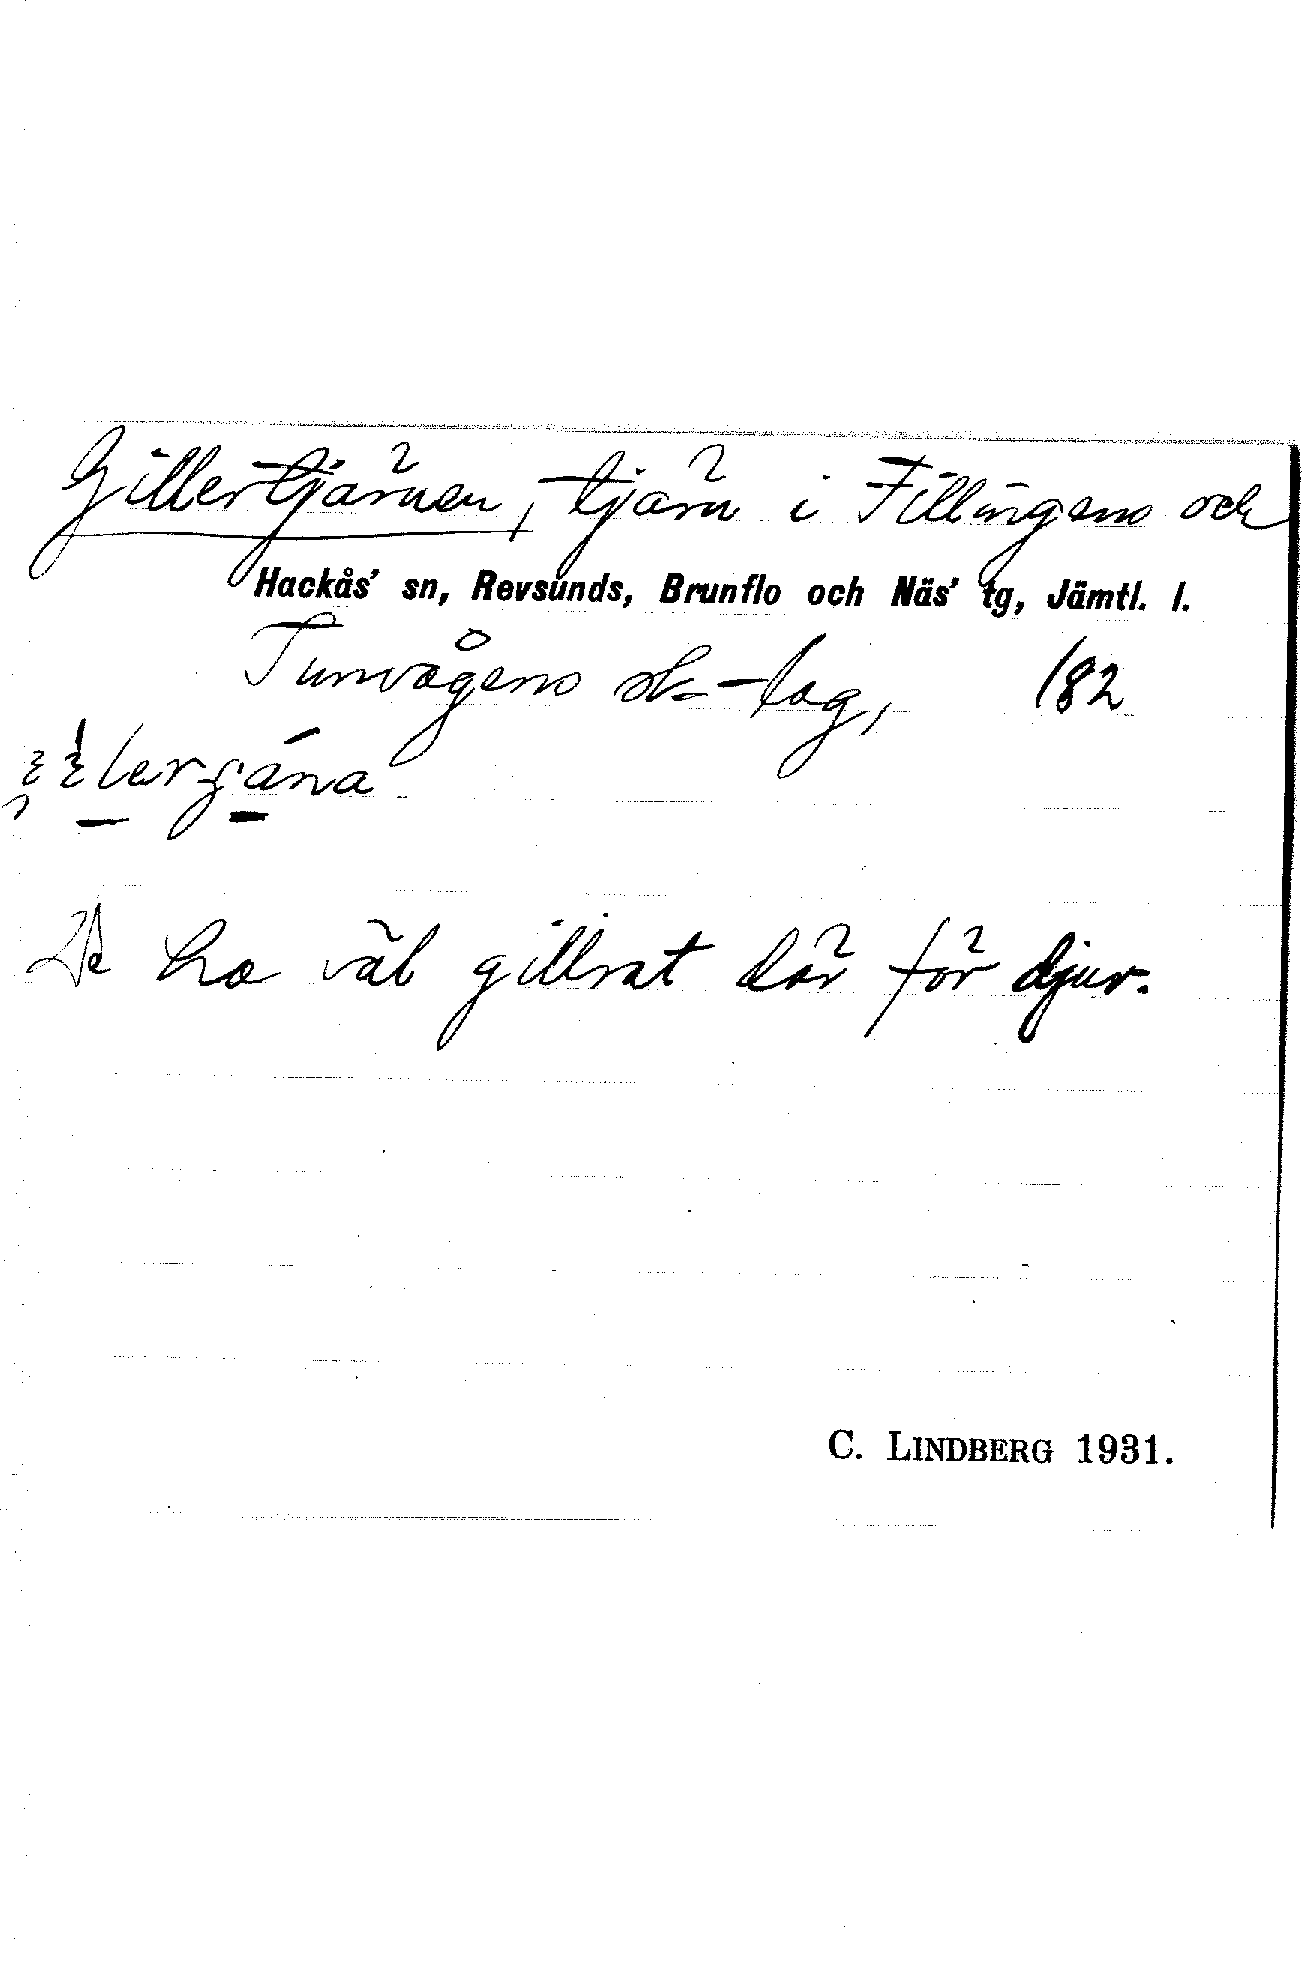 Gillertjärnen, tjärn i Fillingens och
Hackås' sn, Revsunds, Brunflo och Näs' tg, Jämtl. l.
Tunvågens sk-lag, 182
De ha väl gillrat där för djur.
C. LINDBERG 1931.